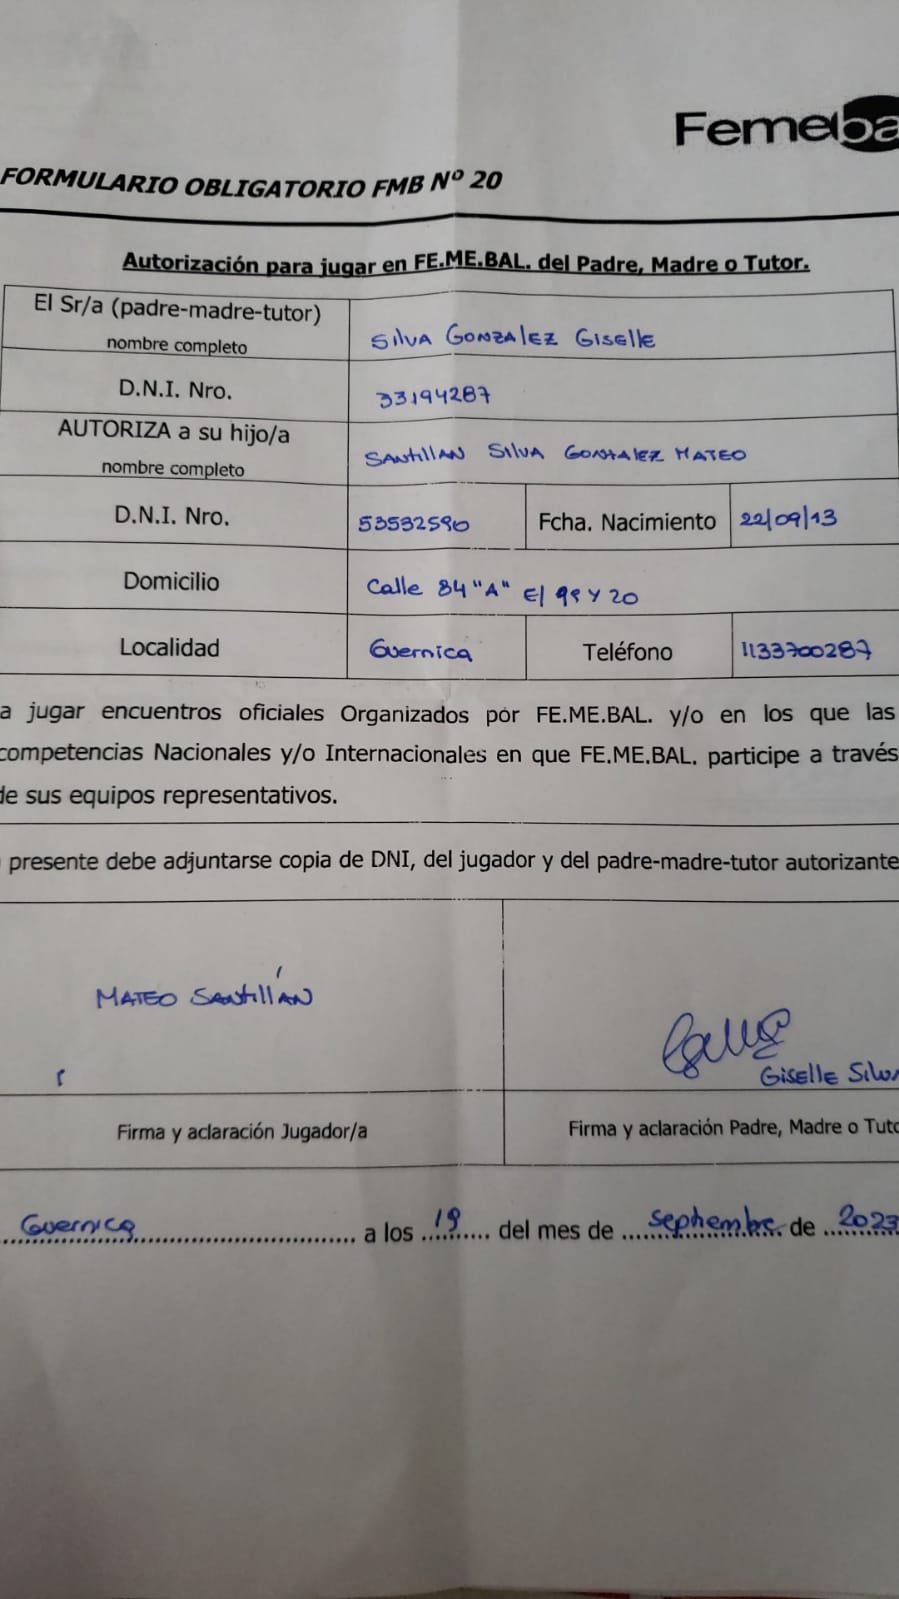 Femeba
FORMULARIO OBLIGATORIO FMB Nº 20
Autorización para jugar en FE.ME.BAL. del Padre, Madre o Tutor.
El Sr/a (padre-madre-tutor)
nombre completo
Silva Gonzalez Giselle
D.N.I. Nro.
33194287
AUTORIZA a su hijo/a
nombre completo
Santillan Silva Gonzalez Mateo
D.N.I. Nro. 53532590 Fcha. Nacimiento 22/09/13
Domicilio Calle 84 "A" E/ 99 Y 20
Localidad Guernica Teléfono 1133700287
a jugar encuentros oficiales Organizados por FE.ME.BAL. y/o en los que las
competencias Nacionales y/o Internacionales en que FE.ME.BAL. participe a través
de sus equipos representativos.
presente debe adjuntarse copia de DNI, del jugador y del padre-madre-tutor autorizante
Mateo Santillán
Giselle Silva
Firma y aclaración Jugador/a
Firma y aclaración Padre, Madre o Tuto
Guernica a los 19 del mes de septiembre de 2023